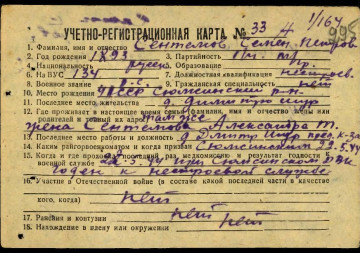 1/164
УЧЕТНО-РЕГИСТРАЦИОННАЯ КАРТА № 33
1. Фамилия, имя и отчество Сентемов Семен Петров
2. Год рождения 1893 3. Партийность
4. Национальность русск 5. Образование
6. На ВУС 134 7. Должностная квалификация
8. Военное звание 9. Гражданская
10. Место рождения УАССР Сюмсинский р-н
11. Последнее место жительства д Димиткушур
12. Где проживает в настоящее время семья, фамилия, имя и отчество жены,
родителей и укажи их адрес там же
жена Сентемова Александра т.
13. Последнее место работы и должность
14. Каким райгорвоенкоматом и когда призван Сюмсинским 22.5.44
15. Когда и где проходил последн. раз медкомиссию и результат годности к
военной службе 22.5.44 при Сюмсинском РВК
годен к нестроевой службе
16. Участие в Отечественной войне (в составе какой последней части в качестве
кого, когда) нет
17. Ранения и контузии нет
18. Нахождение в плену или окружении нет